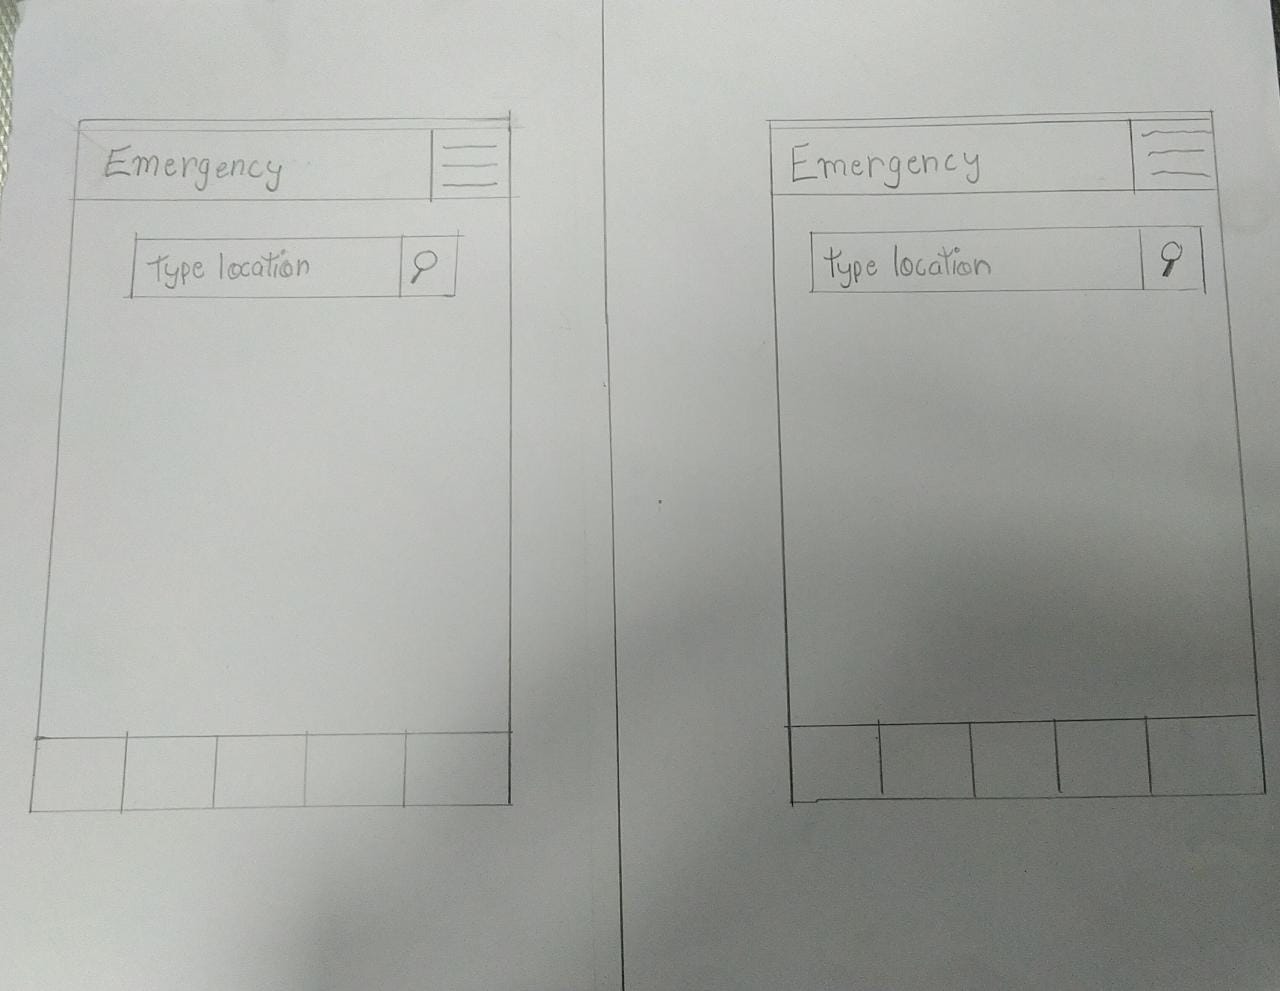 Emergency
Type location
Emergency
Type location